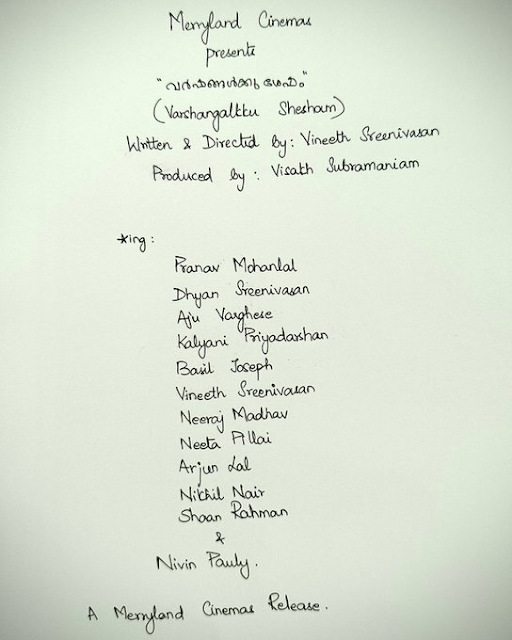 Merryland Cinemas
presents
"വർഷങ്ങൾക്കു ശേഷം"
(Varshangalkku Shesham)
Written & Directed by: Vineeth Sreenivasan
Produced by: Visakh Subramaniam
*ing:
Pranav Mohanlal
Dhyan Sreenivasan
Aju Varghese
Kalyani Priyadarshan
Basil Joseph
Vineeth Sreenivasan
Neeraj Madhav
Neeta Pillai
Arjun Lal
Nikhil Nair
Shaan Rahman
&
Nivin Pauly.
A Merryland Cinemas Release.